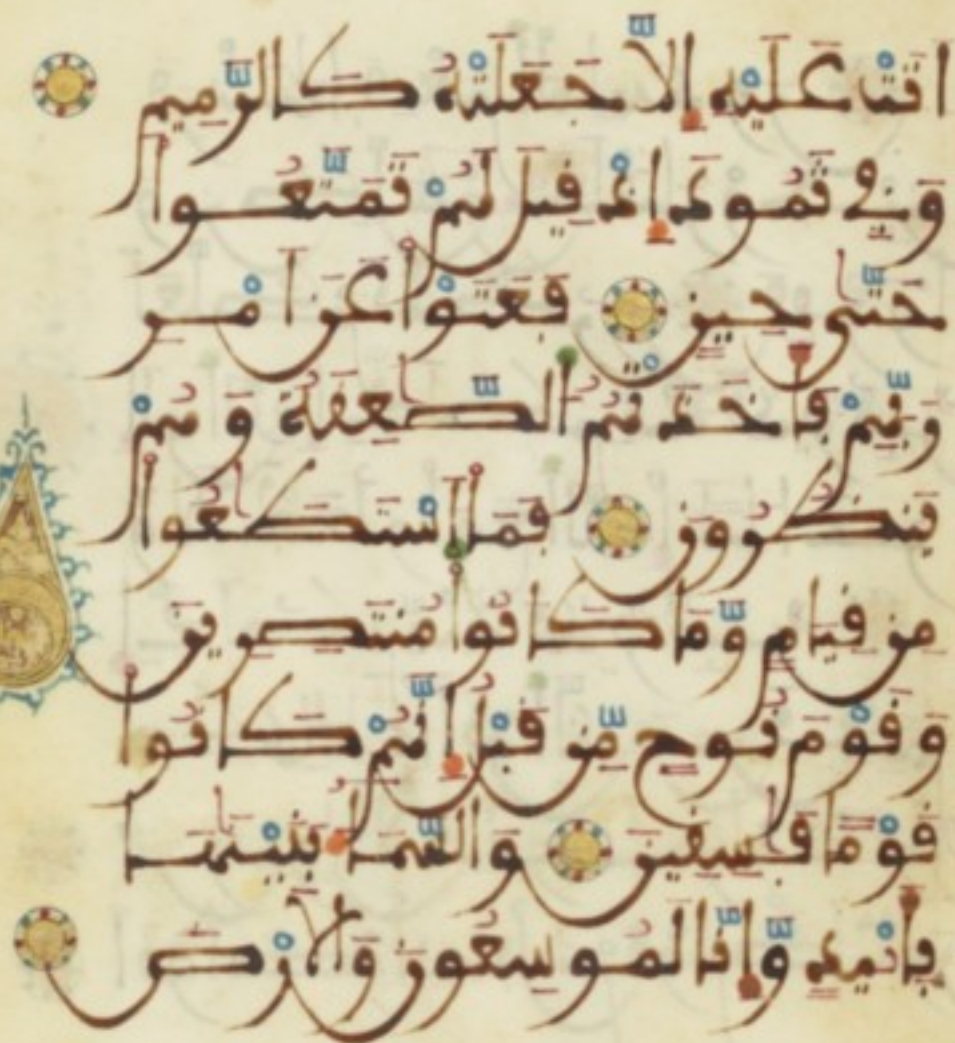 اتت عليه إلا جعلته كالرميم
وفي ثمود إذ قيل لهم تمتعوا
حتى حين فعتوا عن أمر
ربهم فأخذتهم الصعقة وهم
ينظرون فما استطعوا
من قيام وما كانوا منتصرين
وقوم نوح من قبل إنهم كانوا
قوما فسقين والسماء بنينها
بأييد وإنا لموسعون والأرض